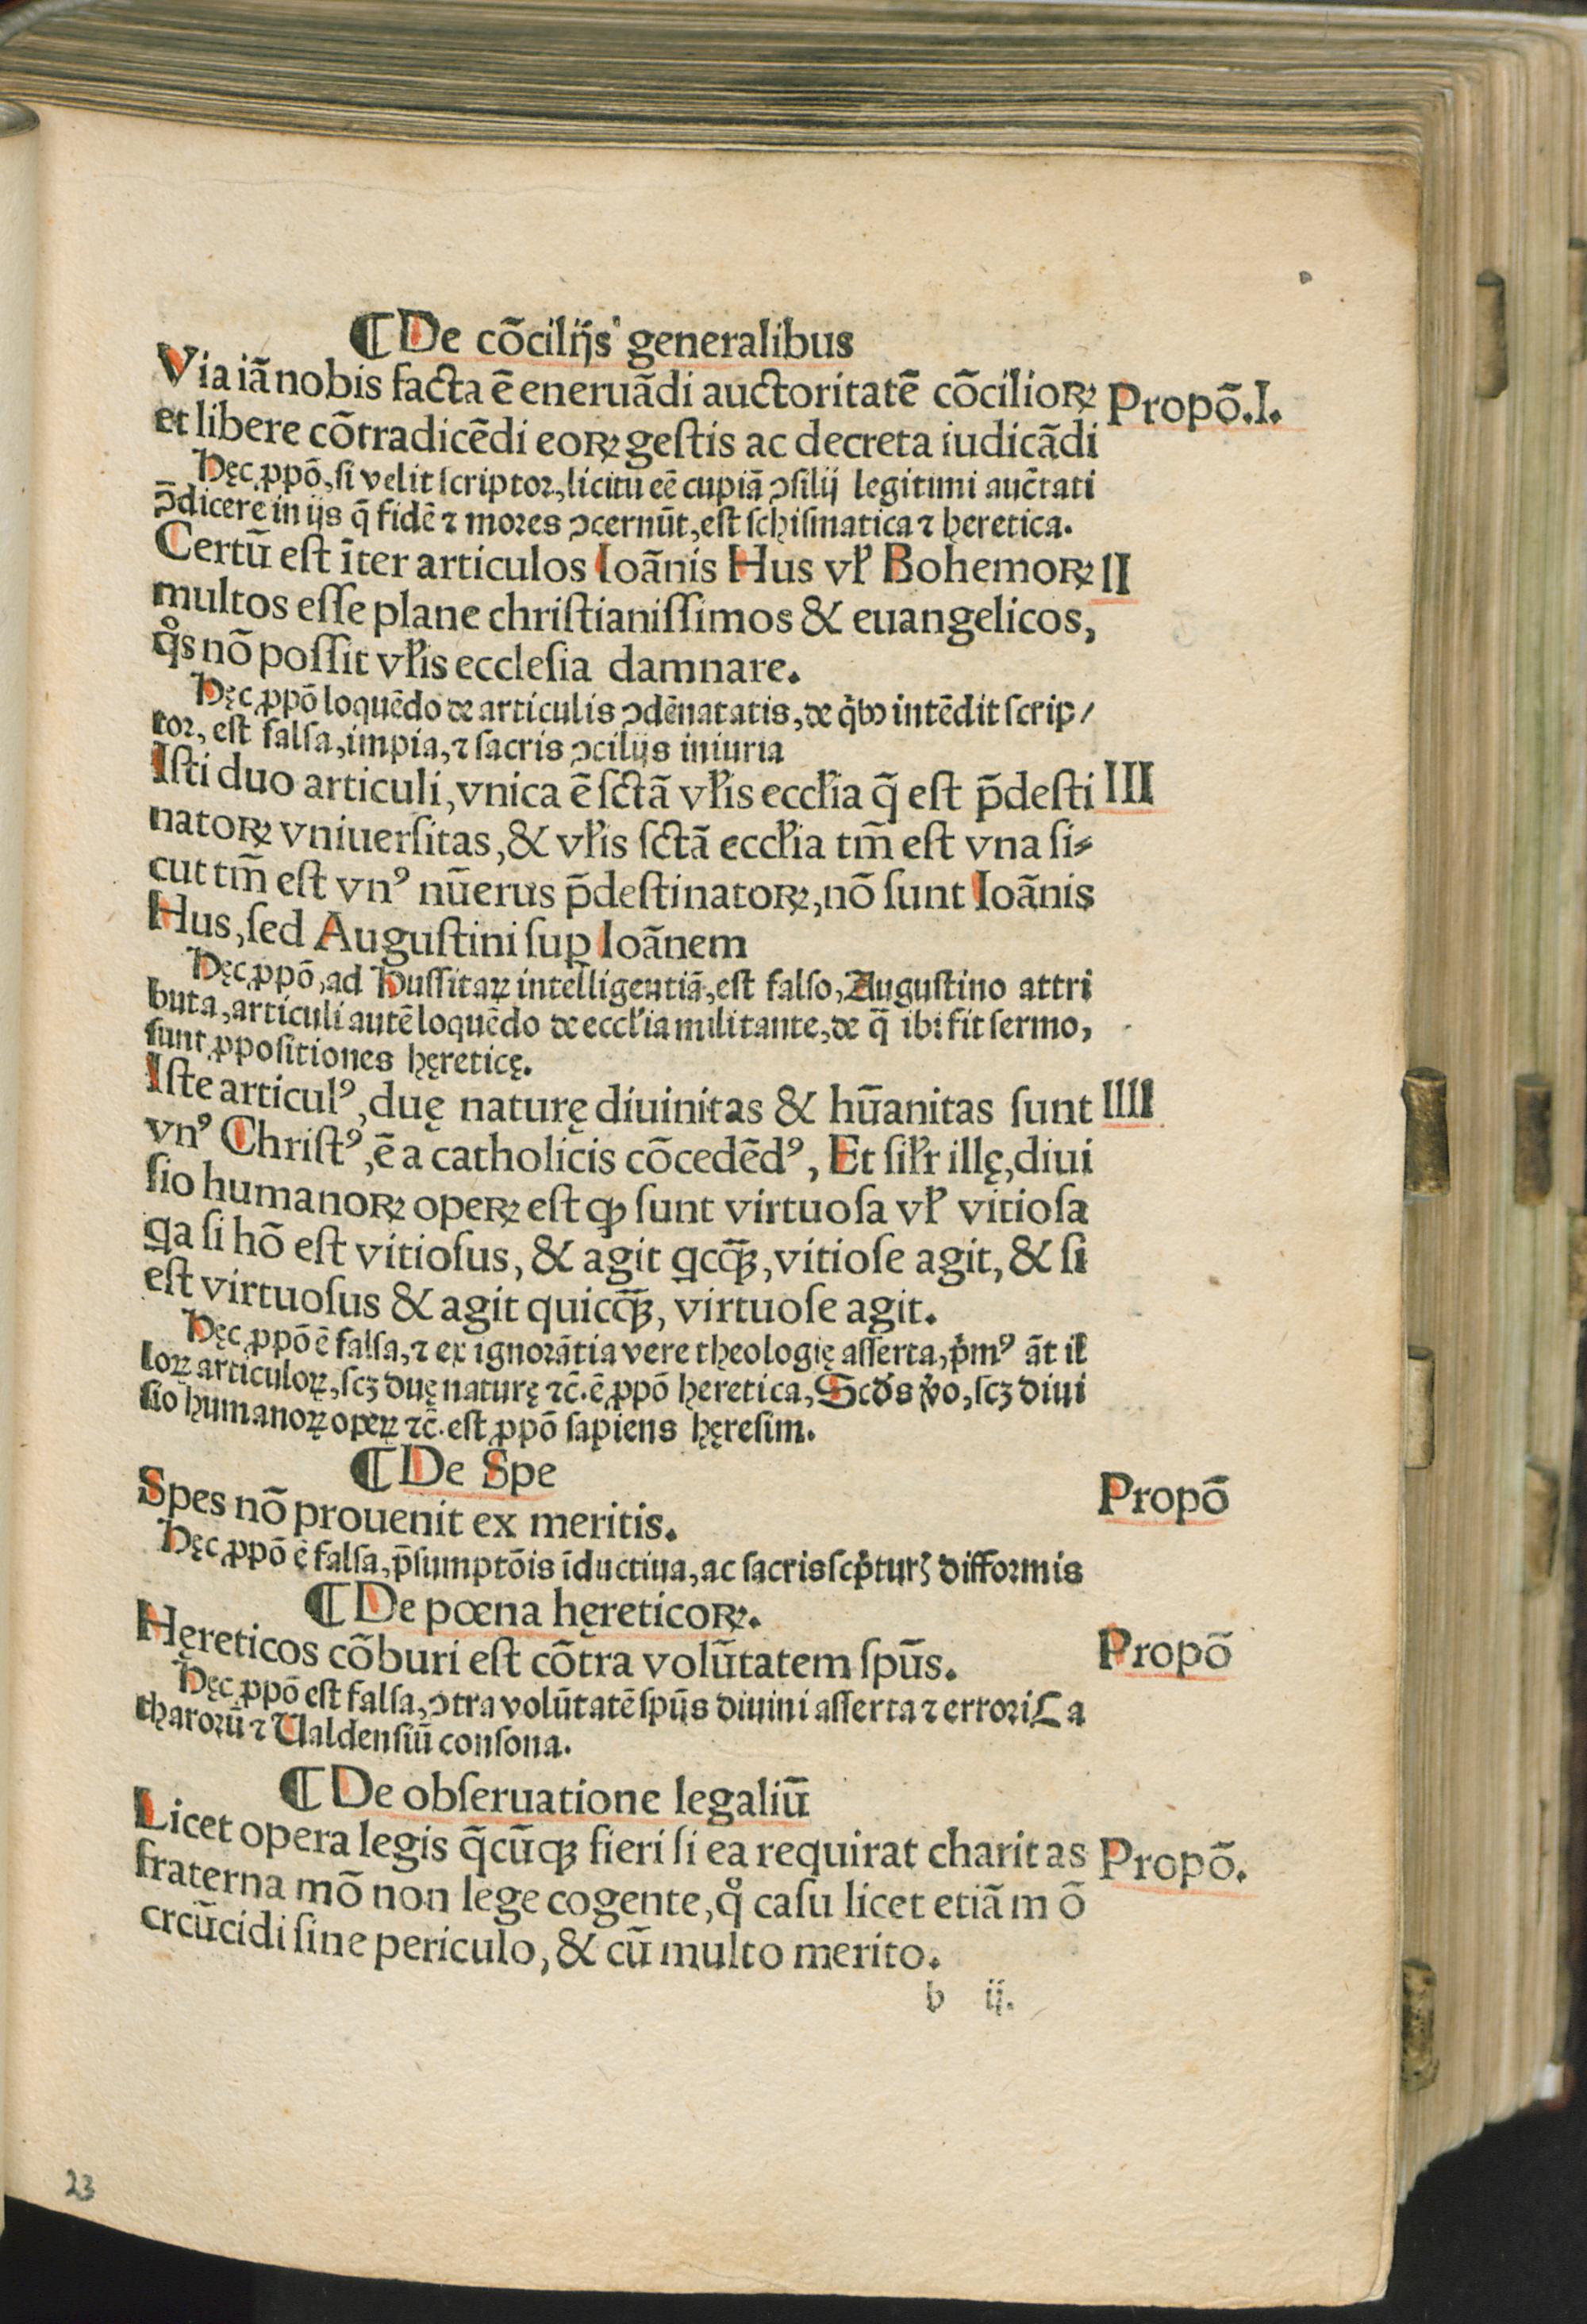 ¶ De cōcilijs generalibus
Via iā nobis facta ē eneruādi auctoritatē cōcilioꝝ Propō.I.
et libere cōtradicēdi eoꝝ gestis ac decreta iudicādi
Hęc ꝓpō, si velit scriptor, licitū eē cupiā ↄsilij legitimi auc̄tati
ↄ̄dicere in ijs q̄ fidē ⁊ mores ↄcernūt, est schismatica ⁊ heretica.
Certū est īter articulos Ioānis Hus vꝉ Bohemoꝝ II
multos esse plane christianissimos & euangelicos,
qͦs nō possit vꝉis ecclesia damnare.
Hęc ꝓpō loquēdo de articulis ↄdēnatatis, de q̇bꝰ intēdit scrip/
tor, est falsa, impia, ⁊ sacris ↄcilijs iniuria
Isti duo articuli, vnica ē sctā vꝉis eccꝉia q̄ est p̄desti III
natoꝝ vniuersitas, & vꝉis sctā eccꝉia tm̄ est vna si⸗
cut tm̄ est vnꝰ nūerus p̄destinatoꝝ, nō sunt Ioānis
Hus, sed Augustini suꝑ Ioānem
Hęc ꝓpō, ad Hussitaꝝ intelligentiā, est falso, Augustino attri
buta, articuli autē loquēdo de eccꝉia militante, de q̄ ibi fit sermo,
sunt ꝓpositiones hęreticę.
Iste articulꝰ, duę naturę diuinitas & hūanitas sunt IIII
vnꝰ Christꝰ, ē a catholicis cōcedēdꝰ, Et siꝉr illę, diui
sio humanoꝝ opeꝝ est ꝙ sunt virtuosa vꝉ vitiosa
ꝗa si hō est vitiosus, & agit ꝗcq̄ꝫ, vitiose agit, & si
est virtuosus & agit quicq̄ꝫ, virtuose agit.
Hęc ꝓpō ē falsa, ⁊ ex ignorātia vere theologię asserta, ṗmꝰ āt il
loꝝ articuloꝝ, scꝫ duę naturę ⁊c̄. ē ꝓpō heretica, Scd̄s v̇o, scꝫ diui
sio humanoꝝ opeꝝ ⁊c̄. est ꝓpō sapiens hęresim.
¶ De Spe
Spes nō prouenit ex meritis. Propō
Hęc ꝓpō ē falsa, p̄sumptōis īductiua, ac sacris scṗturꝭ difformis
¶ De pœna hęreticoꝝ.
Hęreticos cōburi est cōtra volūtatem spūs. Propō
Hęc ꝓpō est falsa, ↄtra volūtatē spūs diuini asserta ⁊ errori Ca
tharorū ⁊ Ualdensiū consona.
¶ De obseruatione legaliū
Licet opera legis q̄cūqꝫ fieri si ea requirat charitas Propō.
fraterna mō non lege cogente, qͦ casu licet etiā mō
crcūcidi sine periculo, & cū multo merito.
b ij.
23